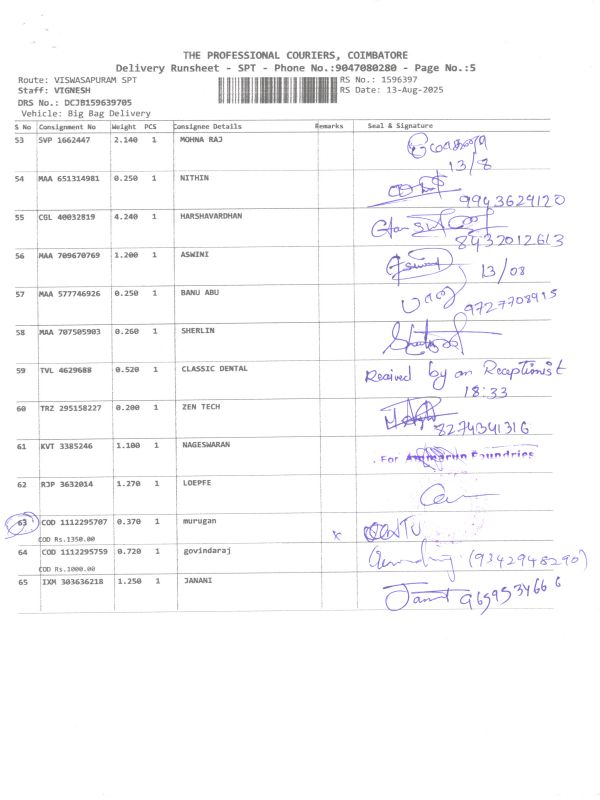 THE PROFESSIONAL COURIERS, COIMBATORE
Delivery Runsheet - SPT - Phone No.:9047080280 - Page No.:5
Route: VISWASAPURAM SPT RS No.: 1596397
Staff: VIGNESH RS Date: 13-Aug-2025
DRS No.: DCJB159639705
Vehicle: Big Bag Delivery
S No Consignment No Weight PCS Consignee Details Remarks Seal & Signature
53 SVP 1662447 2.140 1 MOHNA RAJ
13/8
54 MAA 651314981 0.250 1 NITHIN
9943629120
55 CGL 40032819 4.240 1 HARSHAVARDHAN
8432012613
56 MAA 709670769 1.200 1 ASWINI
13/08
57 MAA 577746926 0.250 1 BANU ABU
9727708915
58 MAA 707505903 0.260 1 SHERLIN
59 TVL 4629688 0.520 1 CLASSIC DENTAL Recived by an Receptionist
18:33
60 TRZ 295158227 0.200 1 ZEN TECH
8274341316
61 KVT 3385246 1.100 1 NAGESWARAN For Foundries
62 RJP 3632014 1.270 1 LOEPFE
63 COD 1112295707 0.370 1 murugan x
COD Rs.1350.00
64 COD 1112295759 0.720 1 govindaraj (9342948290)
COD Rs.1000.00
65 IXM 303636218 1.250 1 JANANI 9659534666